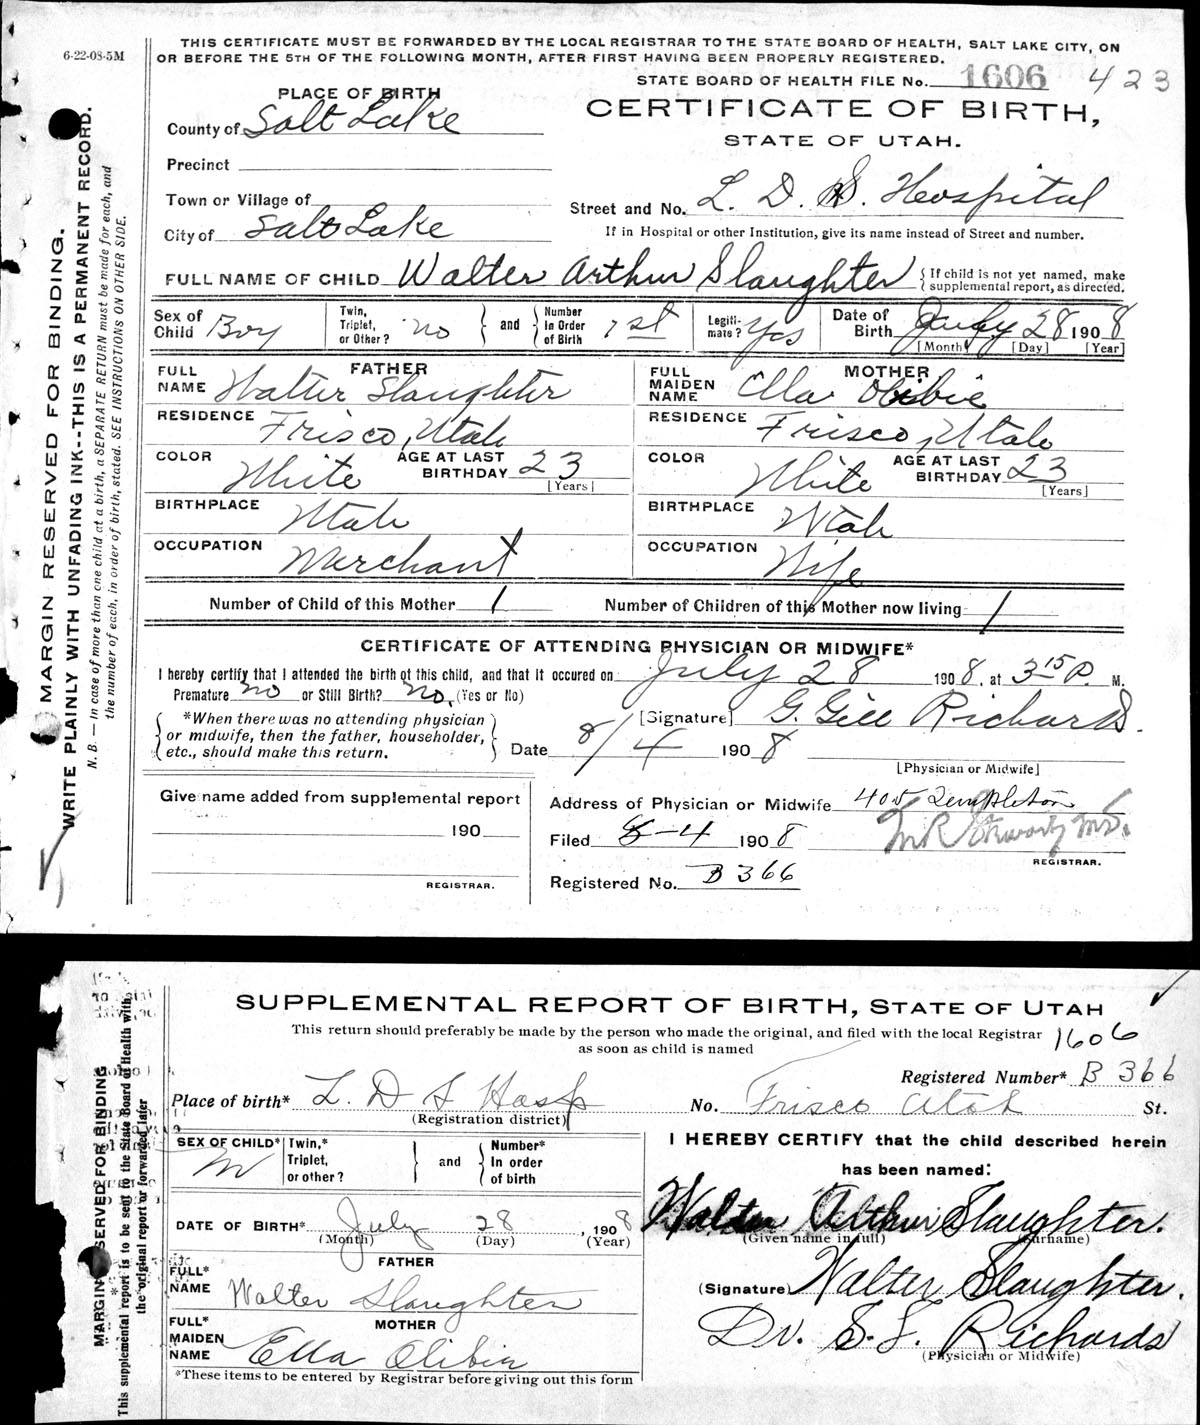 6-22-08-5M
THIS CERTIFICATE MUST BE FORWARDED BY THE LOCAL REGISTRAR TO THE STATE BOARD OF HEALTH, SALT LAKE CITY, ON
OR BEFORE THE 5TH OF THE FOLLOWING MONTH, AFTER FIRST HAVING BEEN PROPERLY REGISTERED.
STATE BOARD OF HEALTH FILE No. 1606 423
PLACE OF BIRTH
CERTIFICATE OF BIRTH,
County of Salt Lake
STATE OF UTAH.
Precinct
Town or Village of
Street and No. L. D. S. Hospital
City of Salt Lake
If in Hospital or other Institution, give its name instead of Street and number.
FULL NAME OF CHILD Walter Arthur Slaughter { If child is not yet named, make supplemental report, as directed.
Sex of Child Boy Twin, Triplet, or Other? no } and { Number In Order of Birth 1st Legiti-mate? Yes Date of Birth July 28 1908
[Month] [Day] [Year]
FATHER
FULL NAME Walter Slaughter
RESIDENCE Frisco, Utah
COLOR White AGE AT LAST BIRTHDAY 23
[Years]
BIRTHPLACE Utah
OCCUPATION Merchant
MOTHER
FULL MAIDEN NAME Ella
RESIDENCE Frisco, Utah
COLOR White AGE AT LAST BIRTHDAY 23
[Years]
BIRTHPLACE Utah
OCCUPATION Wife
Number of Child of this Mother 1 Number of Children of this Mother now living 1
CERTIFICATE OF ATTENDING PHYSICIAN OR MIDWIFE*
I hereby certify that I attended the birth of this child, and that it occured on July 28 1908. at 3 15 P. M.
Premature no or Still Birth? no. (Yes or No)
{ *When there was no attending physician
or midwife, then the father, householder,
etc., should make this return. }
[Signature] G. Gill Richards.
Date 8/4 1908
[Physician or Midwife]
Give name added from supplemental report
190
REGISTRAR.
Address of Physician or Midwife 405 Templeton
Filed 8-4 1908
REGISTRAR.
Registered No. B 366
MARGIN RESERVED FOR BINDING.
WRITE PLAINLY WITH UNFADING INK--THIS IS A PERMANENT RECORD.
N. B. — In case of more than one child at a birth, a SEPARATE RETURN must be made for each, and
the number of each, in order of birth, stated. SEE INSTRUCTIONS ON OTHER SIDE.
SUPPLEMENTAL REPORT OF BIRTH, STATE OF UTAH
This return should preferably be made by the person who made the original, and filed with the local Registrar
as soon as child is named
1606
Registered Number* B 366
Place of birth* L. D S Hosp No. Frisco Utah St.
(Registration district)
SEX OF CHILD* M Twin,* Triplet, or other? } and { Number* In order of birth
DATE OF BIRTH* July 28, 1908
(Month) (Day) (Year)
FATHER
FULL* NAME Walter Slaughter
MOTHER
FULL* MAIDEN NAME Ella
*These items to be entered by Registrar before giving out this form
I HEREBY CERTIFY that the child described herein
has been named:
Walter Arthur Slaughter.
(Given name in full) (Surname)
(Signature) Walter Slaughter.
Dr. Richards
(Physician or Midwife)
MARGIN RESERVED FOR BINDING
This supplemental report is to be sent to the State Board of Health with
the original report or forwarded later